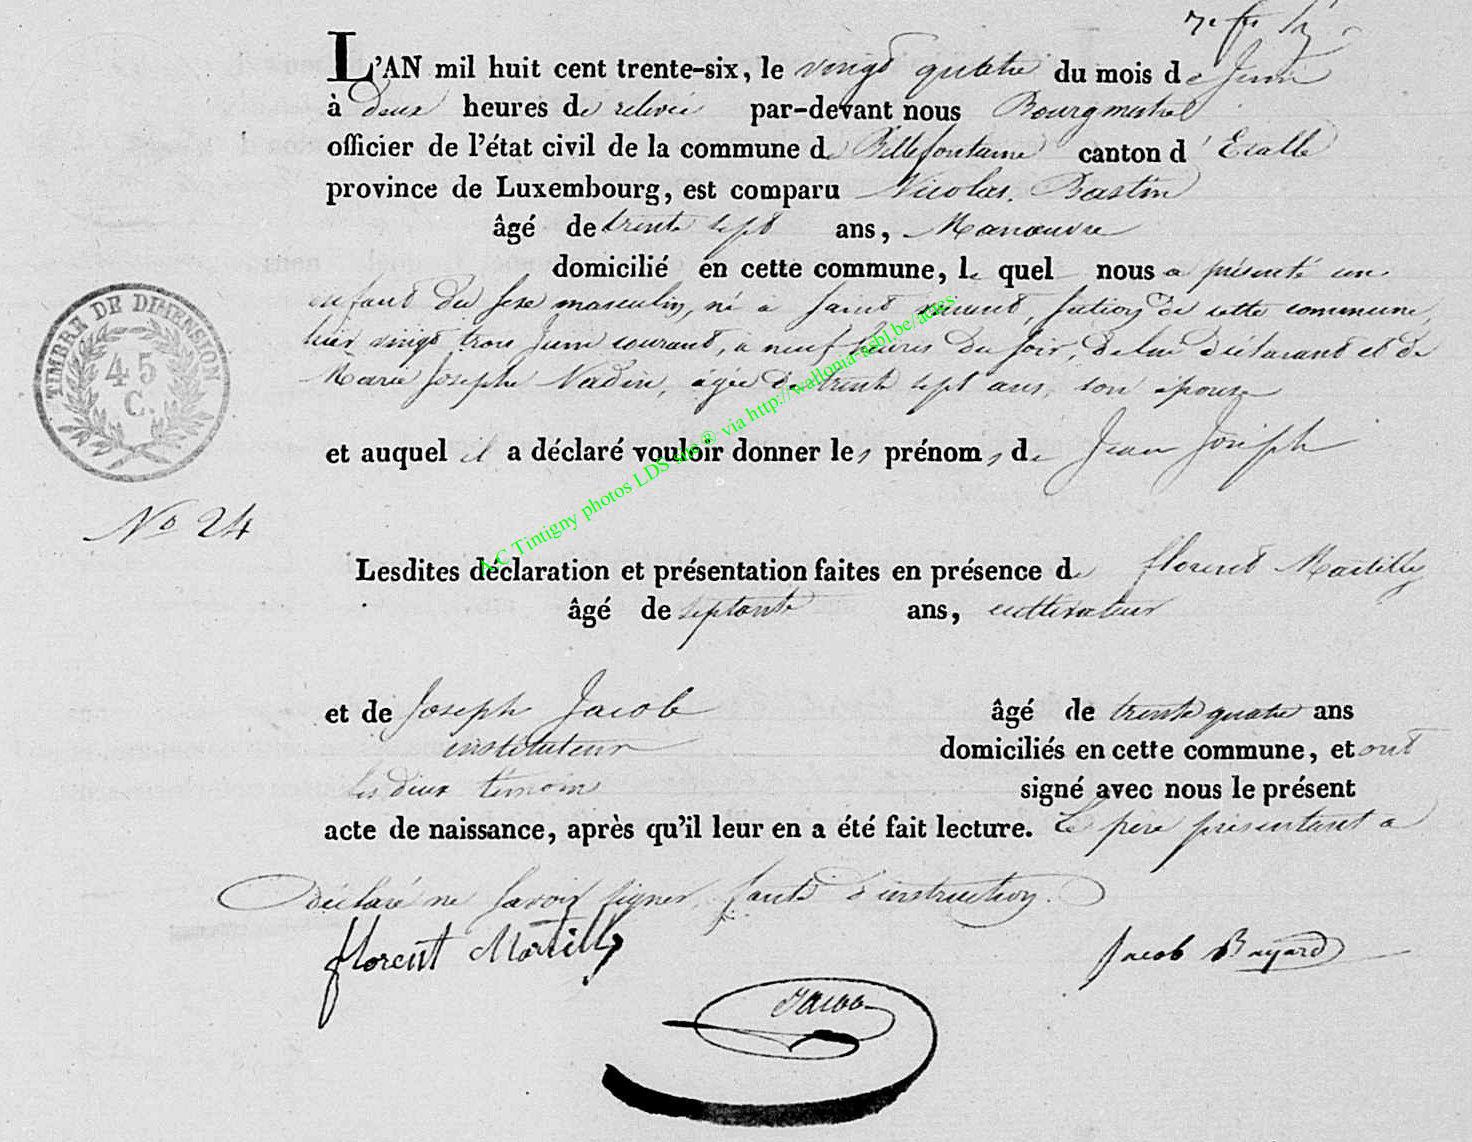 L'AN mil huit cent trente-six, le vingt quatre du mois de Juin
à deux heures de relevée par-devant nous Bourgmestre
officier de l'état civil de la commune de Bellefontaine canton d'Etalle
province de Luxembourg, est comparu Nicolas Bastin
âgé de trente sept ans, Manœuvre
domicilié en cette commune, le quel nous a présenté un
enfant du sexe masculin, né à Saint vincent, section de cette commune,
hier vingt trois Juin courant, à neuf heures du soir, de lui déclarant et de
Marie Josephe Nadin, agée de trente sept ans, son épouse
et auquel il a déclaré vouloir donner les prénoms de Jean Joseph
TIMBRE DE DIMENSION
45
C.
No 24
Lesdites déclaration et présentation faites en présence de florent Martilly
âgé de septante ans, cultivateur
et de Joseph Jacob âgé de trente quatre ans
instituteur domiciliés en cette commune, et ont
les deux témoins signé avec nous le présent
acte de naissance, après qu'il leur en a été fait lecture. Le père présentant a
déclaré ne savoir signer, faute d'instruction.
florent Martilly
Jacob Bayard
Jacob
A.C Tintigny photos LDS sdc® via http://wallonia-asbl.be/actes